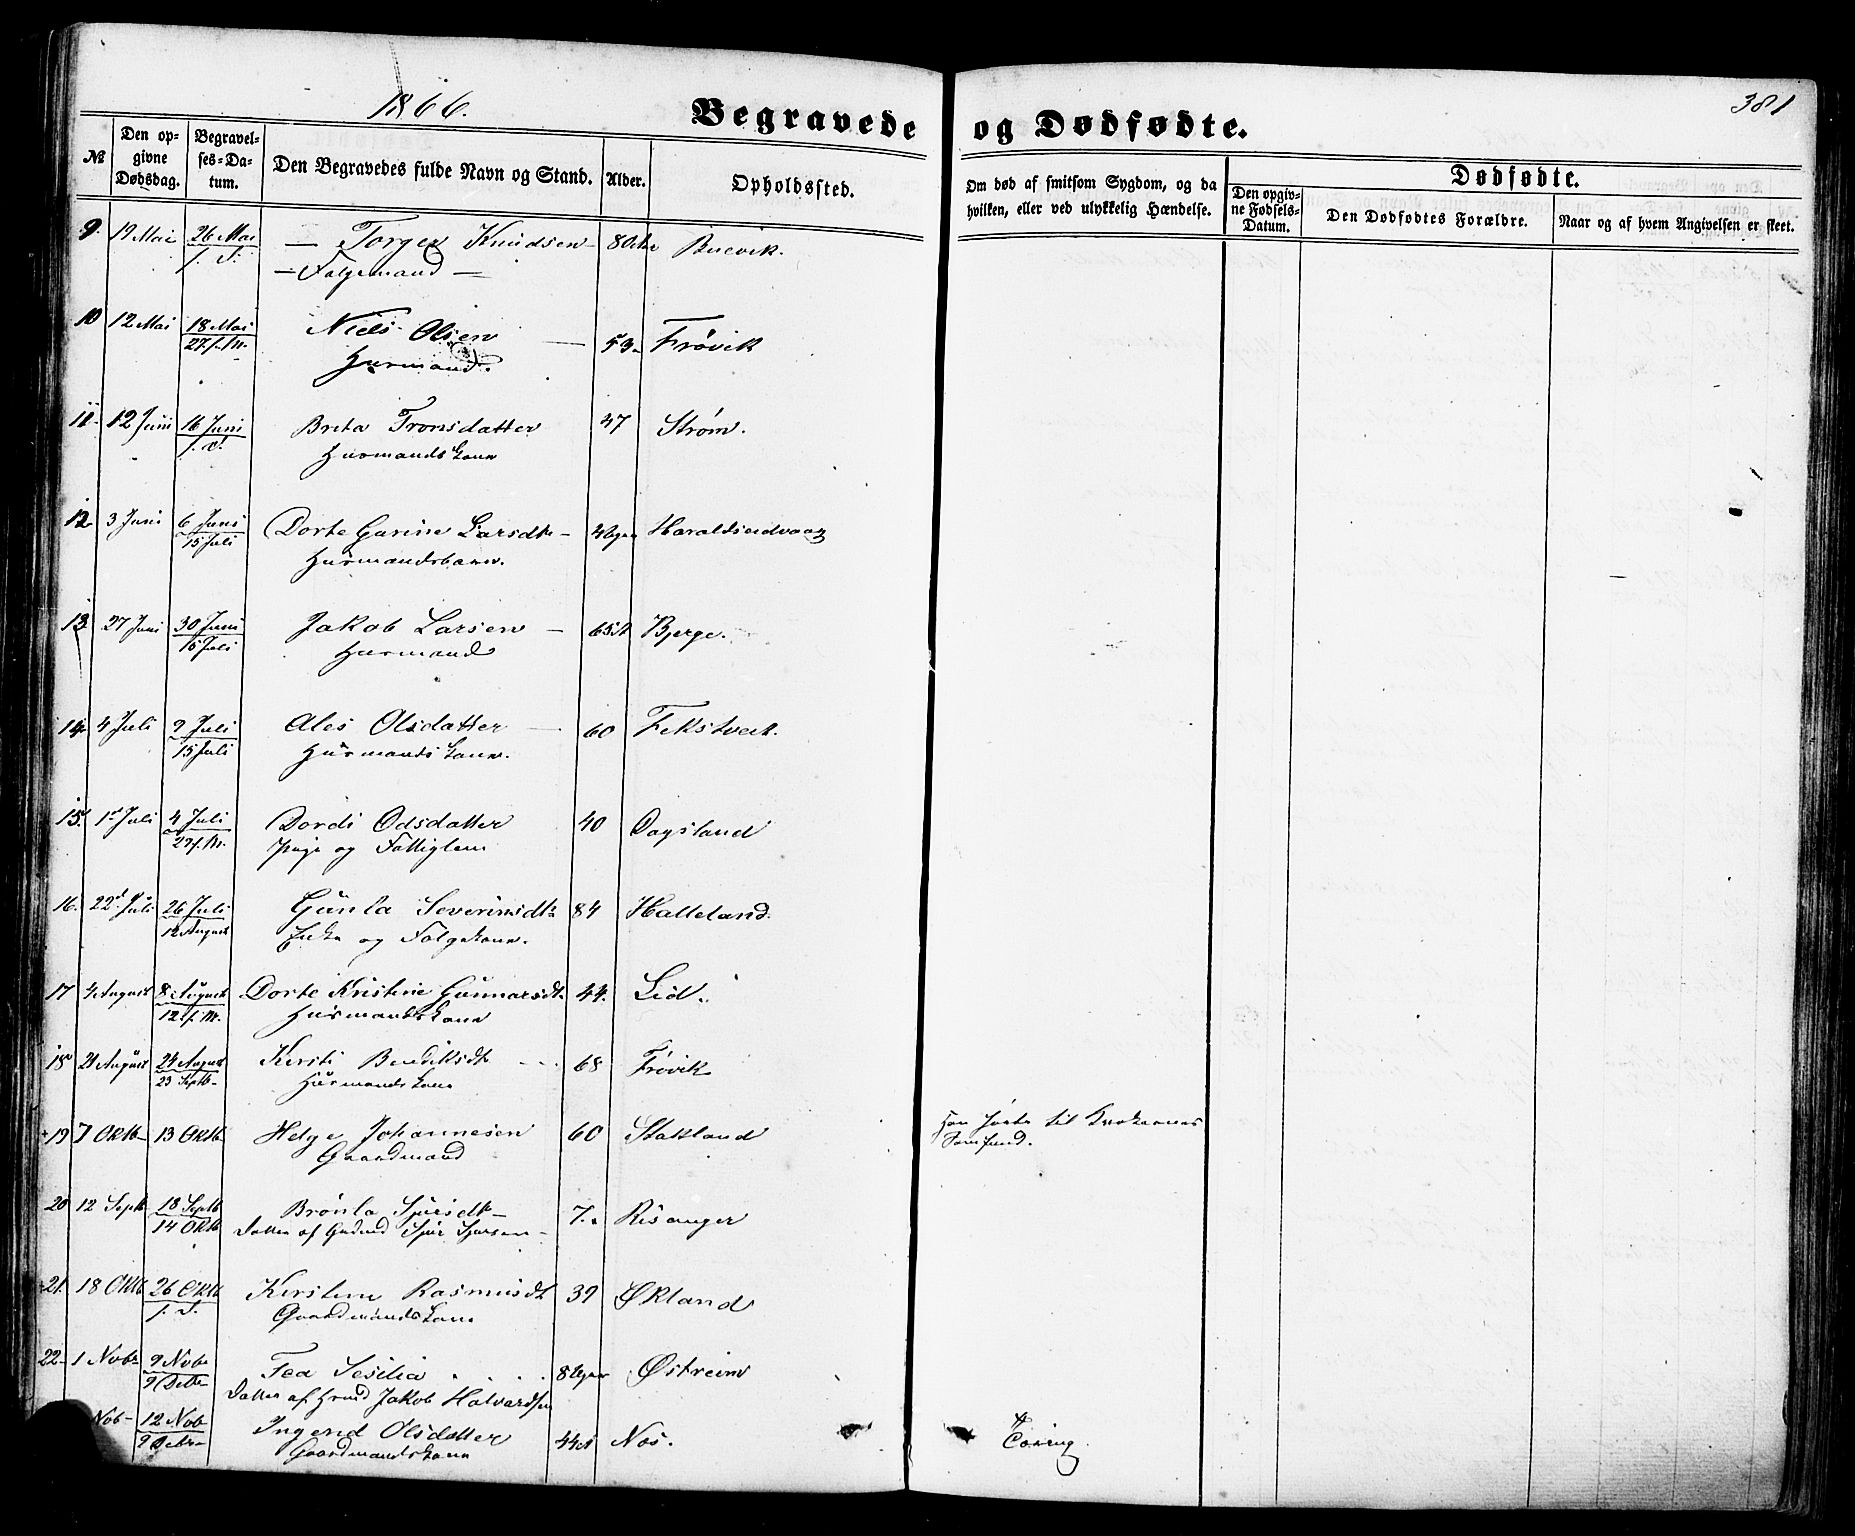 1866.
Begravede og Dødfødte.
381
№
Den opgivne Dødsdag.
Begravelses-Datum.
Den Begravedes fulde Navn og Stand.
Alder.
Opholdssted.
Om død af smitsom Sygdom, og da hvilken, eller ved ulykkelig Hændelse.
Dødfødte.
Den opgivne Fødsels-Datum.
Den Dødfødtes Forældre.
Naar og af hvem Angivelsen er skeet.
9. 19 Mai 26 Mai — Torger Knudsen — 80 Buevik.
— Folgemand —
10 12 Mai 18 Mai Niels Olsen — 53 Frøvik
27. f. M. Huusmand.
11 12 Juni 16 Juni Brita Tronsdatter 47 Strøm.
Huusmandskone
12 3 Juni 6 Juni Dorte Garine Larsdtr — Haraldseidvaag
15 Juli Huusmandsbarn.
13 27 Juni 30 Juni Jakob Larsen — 65 Bjerge.
15 Juli Huusmand
14 4 Juli 9 Juli Ales Olsdatter — 60 Fekstveit.
15 Juli Huusmandskone.
15. 1 Juli 4 Juli Dordi Odsdatter 40 Dagsland
29 f. M. Pige og Fattiglem
16. 22 Juli 26 Juli Gunla Severinsdtr 84 Halleland.
12 August Enke og Folgekone.
17 4 August 8 August Dorte Kristine Gunnarsdt. 44. Lid.
12 f. M. Huusmandskone
18 21 August 24 August Kirsti Bendiksdt 68 Frøvik
23 Septb Huusmandskone
19 7 Oktb 13 Oktb Helge Johannesen 60 Stakland Han hørte til Kvækernes
Gaardmand Samfund.
20 12 Septb 18 Septb Brønla Sjursdtr 7. Risanger
14 Oktb Datter af Sjur Sjursen —
21. 18 Oktb 26 Oktb Kirstine Rasmusdt 39 Økland
Gaardmandskone
22 1 Novbr 9 Novbr Tea Sesilia 8 Østreim
9 Decbr Datter af Jakob Halvardsen
Nob 12 Nob Ingerid Olsdatter 44 Nos.
9 Decbr Gaardmandskone